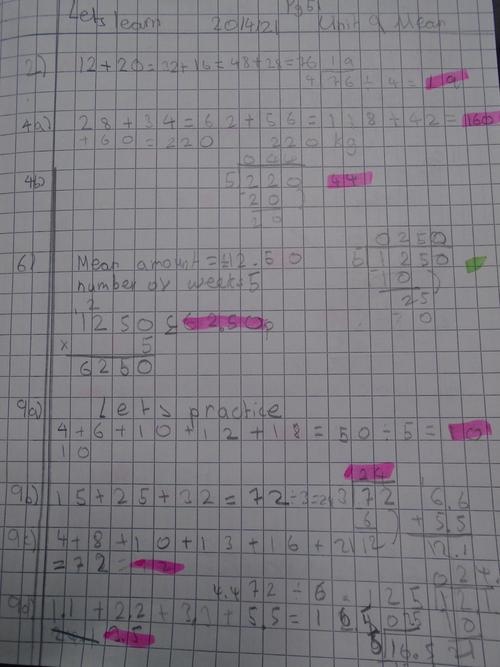 Lets learn 20/4/21 Pg 51 Unit 9 Mean
2) 12+20=32+16=48+28=76 19
4 76÷4=19
4a) 28+34=62+56=118+42=160
+60=220 220 kg
044
4b) 5 220 44
20
20
0250
6) Mean amount = £12.50 5 1250
number of weeks 5 10
25
2 0
1250 £62.50p
x 5
6250
9a) Lets practice
4+6+10+12+18=50÷5=10
10
24
9b) 15+25+32=72÷3=24 3 72 6.6
6 +5.5
9c) 4+8+10+13+16+21 12 12.1
=72=12
72÷6
9d) 1.1+2.2+3.3+5.5=